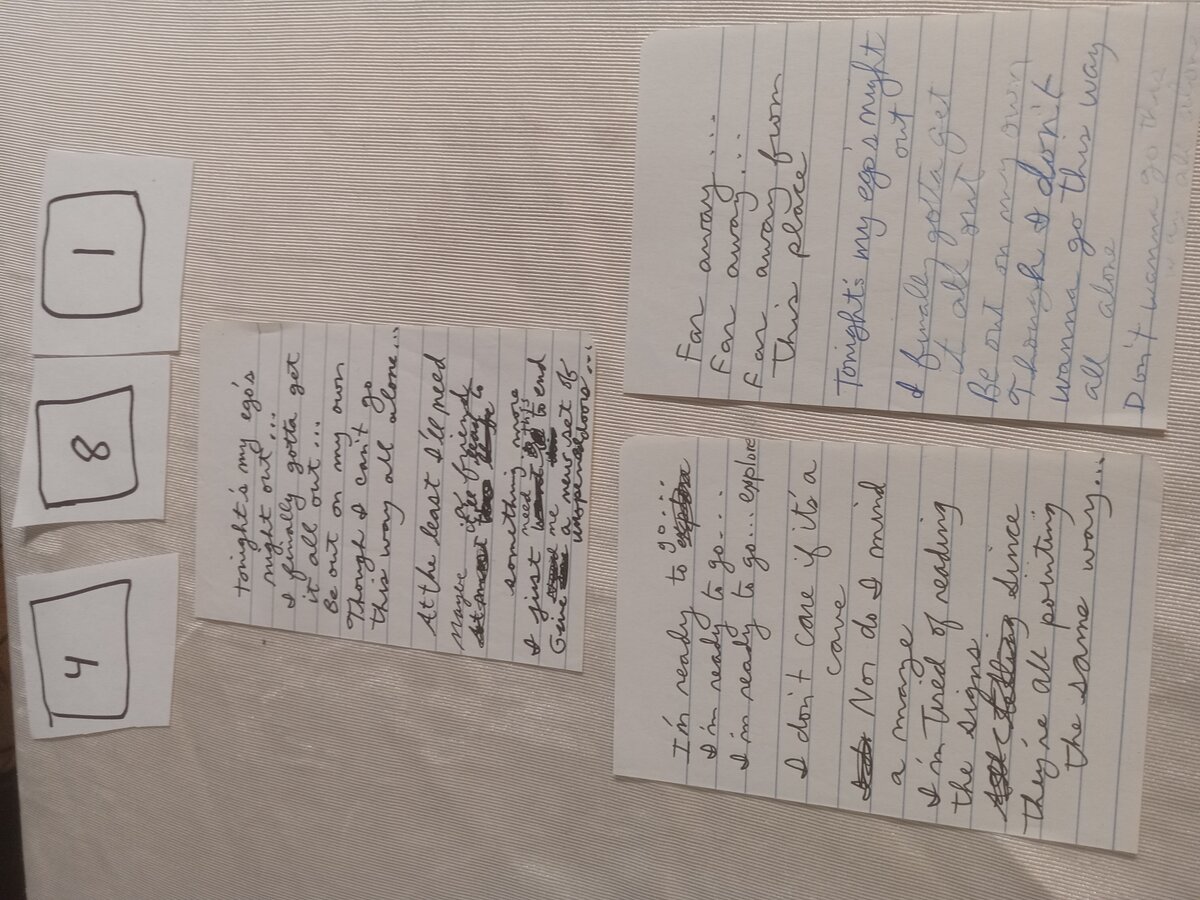 4
8
1
Tonight's my ego's
night out...
I finally gotta get
it all out...
Be out on my own
Though I can't go
this way all alone...
At the least I'll need
Maybe if a friend
something more
I just need this to end
Give me a new set of
doors...
I'm ready to go....
I'm ready to go...
I'm ready to go... explore
I don't care if it's a
cave
Nor do I mind
a maze
I'm Tired of reading
the signs
Since
they're all pointing
the same way...
Far away...
Far away...
Far away from
This place
Tonight's my ego's night
out
I finally gotta get
it all out
Be out on my own
Though I don't
wanna go this way
all alone
Don't wanna go this